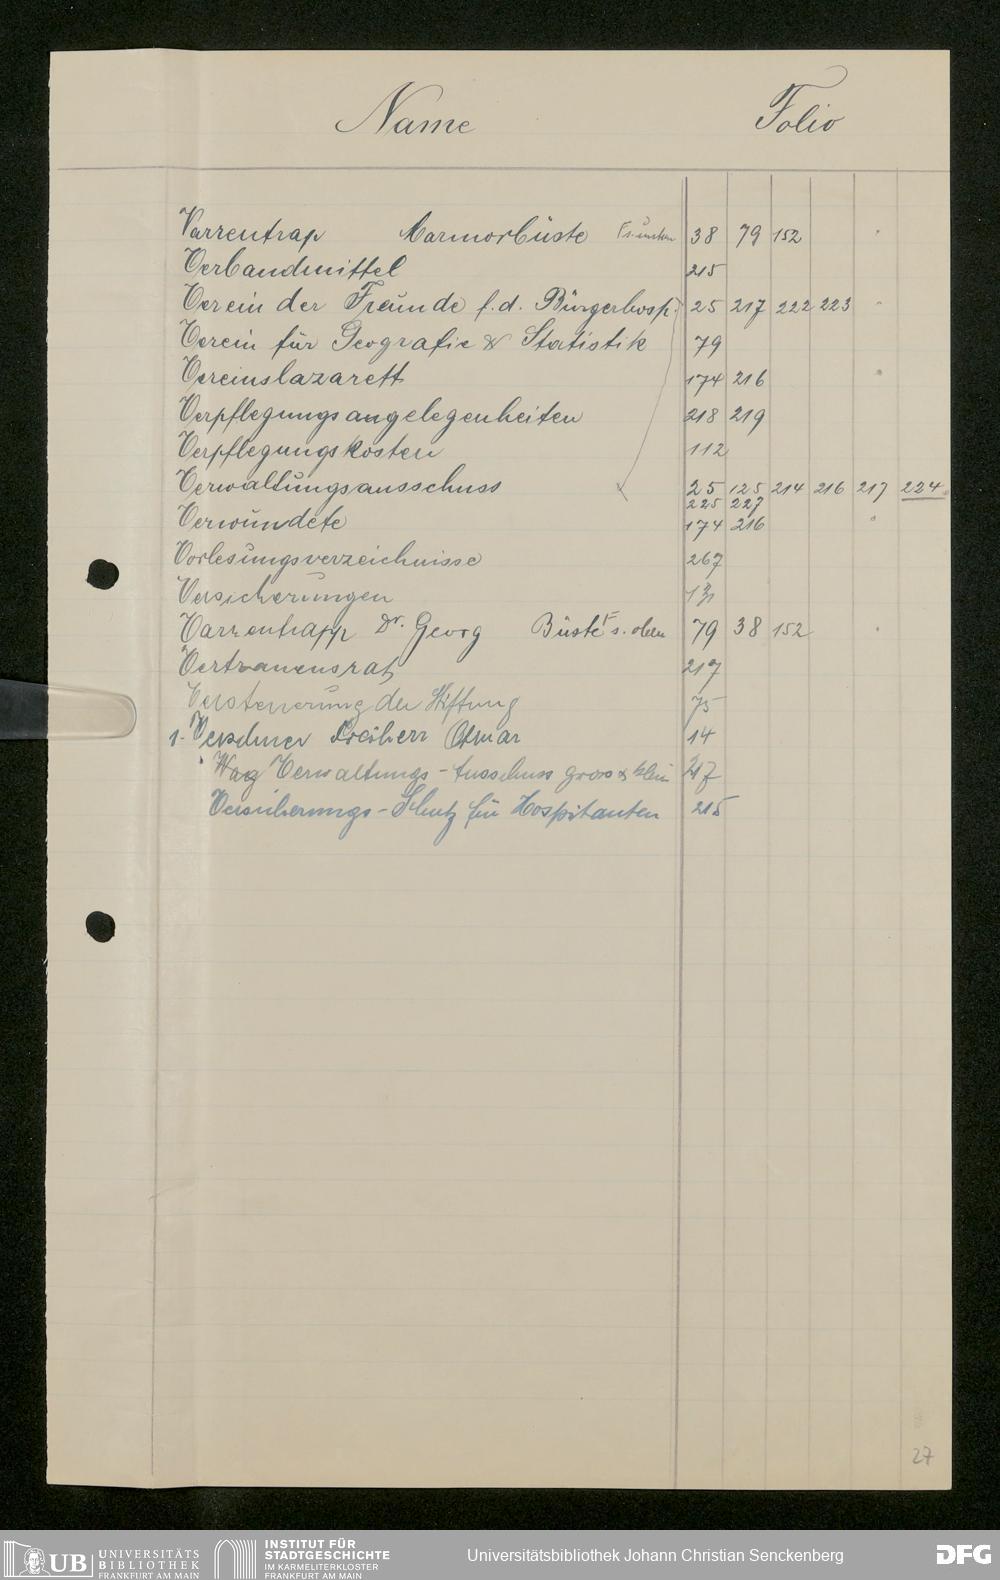 Name Folio
Varrentrap Marmorbüste s. unten 38 79 152
Verbandmittel 215
Verein der Freunde f. d. Bürgerhosp. 25 217 222 223
Verein für Geografie & Statistik 79
Vereinslazarett 174 216
Verpflegungsangelegenheiten 218 219
Verpflegungskosten 112
Verwaltungsausschuss 25 125 214 216 217 224
225 227
Verwundete 174 216
Vorlesungsverzeichnisse 267
Versicherungen
Varrentrapp Dr. Georg Büste s. oben 79 38 152
Vertrauensrat 217
Versteuerung der Stiftung 75
Freiherr Otmar 14
Verwaltungs-Ausschuss gross & klein 217
Versicherungs-Schutz für Hospitanten 215
27
UB UNIVERSITÄTS
BIBLIOTHEK
FRANKFURT AM MAIN
INSTITUT FÜR
STADTGESCHICHTE
IM KARMELITERKLOSTER
FRANKFURT AM MAIN
Universitätsbibliothek Johann Christian Senckenberg
DFG